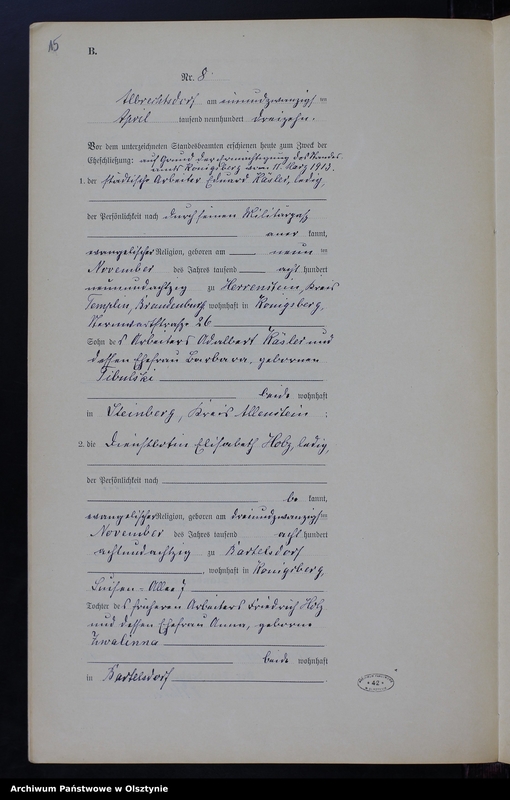 15
B.
Nr. 8
Albrechtsdorf am einundzwanzigsten
April tausend neunhundert dreizehn.
Vor dem unterzeichneten Standesbeamten erschienen heute zum Zweck der
Eheschließung: auf Grund der Ermächtigung des Standes-
amts Königsberg vom 11. März 1913.
1. der städtische Arbeiter Eduard Käsler, ledig,
der Persönlichkeit nach durch seinen Militärpaß
aner kannt,
evangelischer Religion, geboren am neunten
November des Jahres tausend acht hundert
neunundachtzig zu Herrenstein, Kreis
Templin, Brandenburg wohnhaft in Königsberg,
Sternwartstraße 26
Sohn des Arbeiters Adalbert Käsler und
dessen Ehefrau Barbara, geborenen
Tibulski
beide wohnhaft
in Steinberg, Kreis Allenstein ;
2. die Dienstbotin Elisabeth Holz, ledig,
der Persönlichkeit nach
be kannt,
evangelischer Religion, geboren am dreiundzwanzigsten
November des Jahres tausend acht hundert
achtundachtzig zu Bartelsdorf
, wohnhaft in Königsberg,
Luisen-Allee
Tochter des früheren Arbeiters Friedrich Holz
und dessen Ehefrau Anna, geborene
beide wohnhaft
in Bartelsdorf .
42
Archiwum Państwowe w Olsztynie